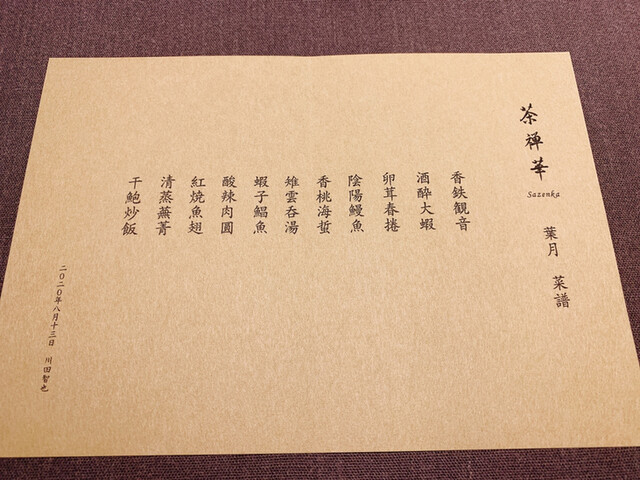 茶禅華
Sazenka
葉月 菜譜
香鉄観音
酒酔大蝦
卵茸春捲
陰陽鰻魚
香桃海蜇
雉雲呑湯
蝦子鯧魚
酸辣肉圓
紅焼魚翅
清蒸蕪菁
干鮑炒飯
二〇二〇年八月十三日 川田智也